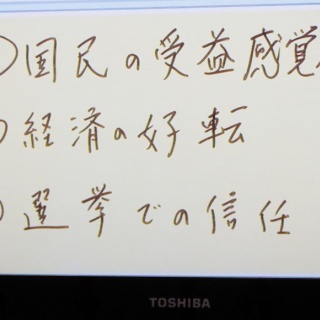 国民の受益感覚
経済の好転
選挙での信任
TOSHIBA